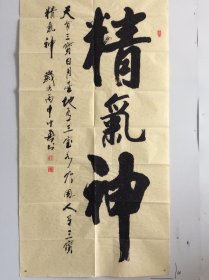 精氣神
天有三寶日月星地有三寶水火風人有三寶
精氣神 歲次丙申